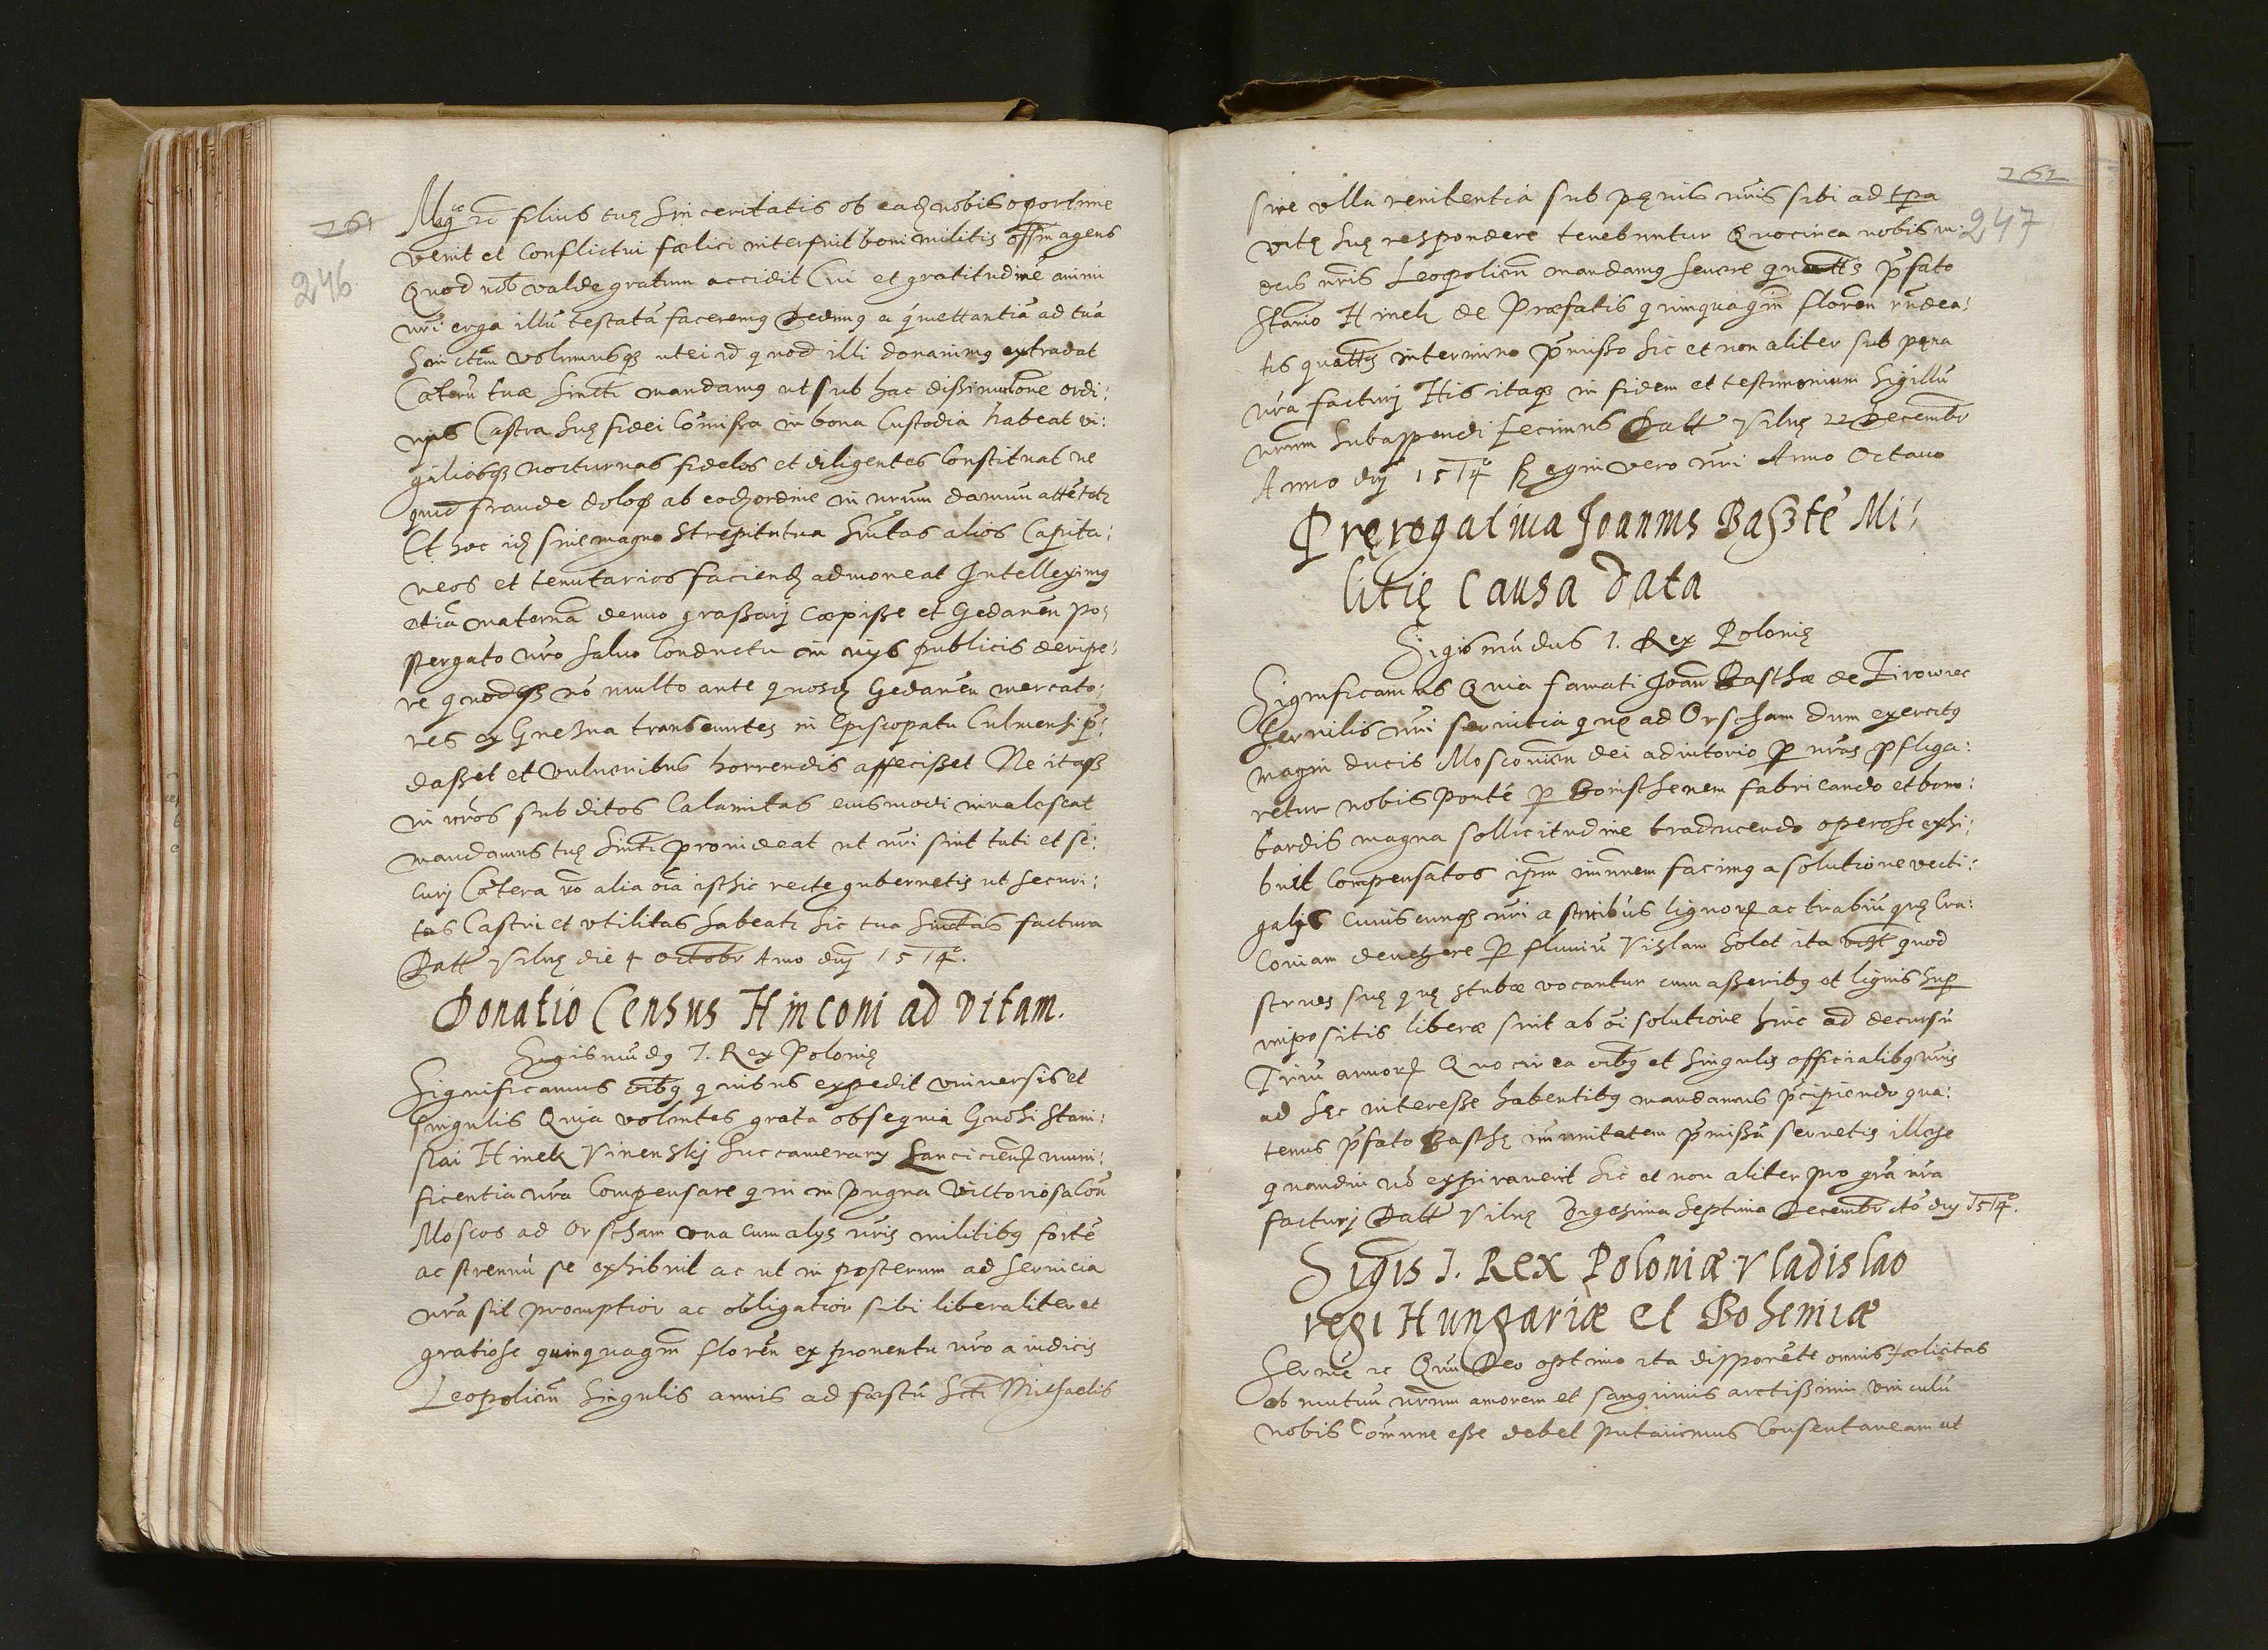 261
246
Mgco rc filius tuę Sinceritatis ob eadȝ nobis oportune
venit et Conflictui fælici interfuit boni militis offm agens
Quod nob valde gratum accidit Cui et gratitudinē animi
nri erga illū testatā faceremꝰ Dedimꝰ a quiettantiā ad tuā
Sincitem Volumusqȝ utei id quod illi donauimꝰ extradat
Cæterū tuæ Sincti mandamꝰ ut sub hac dissimulone ordi:
nis Castra Suę fidei Comissa in bona Custodia habeat vi:
giliasqȝ nocturnas fideles et diligentes Constituat ne
quid fraude doloqȝ ab eodȝ ordine in nrum damnū attētetr
Et hoc idȝ sine magno strepitu tua Sinctas alios Capita:
neos et tenutarios faciendȝ admoneat Intelleximꝰ
etiā Maternā denuo grassarj Cœpisse et Gedanēn po:
stergato nro saluo Conductu in vijs publicis deripe:
re quodqȝ nō multo ante quosdȝ Gedanēn mercato:
res ex Gnezna transeuntes in Episcopatu Culmensi p̄:
dasset et vulneribus horrendis affecisset Ne itaqȝ
in nros subditos Calamitas eiusmodi inualescat
mandamus tuę Sincti prouideat ut nri sint tuti et se:
curj Cætera vo alia oīa isthic recte gubernetis ut securi:
tas Castri et vtilitas habeatr Sic tua Sinctas factura
Datt Vilnę die 4 Octobr Anno dnj 1514°.
Donatio Census Hinconi ad vitam.
Sigismūdꝰ I. Rex Polonię
Significamus oibꝰ quibus expedit vniuersis et
singulis Quia volentes grata obsequia Gnosi Stani:
slai Hinek Vinenskj Succamerarij Lanciciēn muni:
ficentia nra Compensare qui in pugna Victoriosa Con
Moscos ad Orscham vna Cum alijs nris militibꝰ fortē
ac strenuū se exhibuit ac ut in posterum ad Seruicia
nra sit promptior ac obligatior sibi liberaliter et
gratiose quinquagm̄ florēn ex prouentu nro a iudicis
Leopolien Singulis annis ad fæstū Scti Michaelis
262
247
sine vlla renitentia sub pęnis nris sibi ad tpa
vitę suę respondere tenebuntur Quocirca nobis iu:
deis nris Leopolien mandamꝰ Seuere quatts p̄fato
Stanio Hinek de Præfatis quinquagin floren rndea:
tis quatts in termino p̄misso Sic et non aliter sub pęna
nra facturj His itaqȝ in fidem et testimonium Sigillū
nrum Subappendi fecimus Datt Vilnę 22 Decembr
Anno dnj 1514° Regni vero nri Anno Octauo
Pręrogatiua Joannis Baszte Mi:
litię Causa data
Sigismūdus I. Rex Polonię
Significamus Quia famati Joan Basthæ de Tirowiec
Seruilis nri seruitia quę ad Orscham dum exercitꝰ
magni ducis Mosconien dei adiutorio p nros p̄fliga:
retur nobis Pontē p Boristhenem fabricando et bom:
bardis magna sollicitudine traducendo operose exhi:
buit Compensatos ipm imunem facimꝰ a solutione vecti:
galis Cuiuscunqȝ nri a struibus lignorȝ ac trabiū quę Cra:
couiam deuehere p fluuiū Vislam Solet ita vcȝt quod
strues suę quę stubæ vocantur cum asseribꝰ et lignis Sup
impositis liberæ sint ab oi solutione hinc ad decursū
Triū annorȝ Quocirca oibꝰ et Singulis officialibꝰ nris
ad hęc interesse habentibꝰ mandamus p̄cipiendo qua:
tenus p̄fato Basthę imunitatem p̄missā seruetis illæse
quamdiu nō expirauerit Sic et non aliter pro gra nra
facturj Datt Vilnę Vigesima Septima Decembr Ao dnj 1514°.
Sigis I. Rex Poloniæ Vladislao
regi Hungariæ et Bohemiæ
Serme rc Quū Deo optimo ita disponēte omnis fælicitas
ob mutuū nrum amorem et sanguinis arctissimi vinculū
nobis Comune esse debet putauimus Consentaneam ut